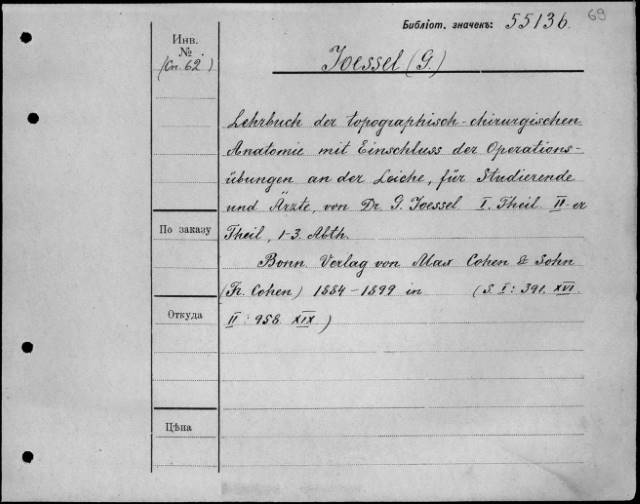 69
Библіот. значекъ: 55136.
Инв.
№
(Сп. 62)
Joessel (G.)
Lehrbuch der topographisch-chirurgischen
Anatomie mit Einschluss der Operations-
übungen an der Leiche, für Studierende
und Ärzte, von Dr. G. Joessel I. Theil II-er
Theil, 1-3. Abth.
Bonn. Verlag von Max Cohen & Sohn
(Fr. Cohen) 1884-1899 in (S. I: 391. XVI
II: 958. XIX)
По заказу
Откуда
Цѣна